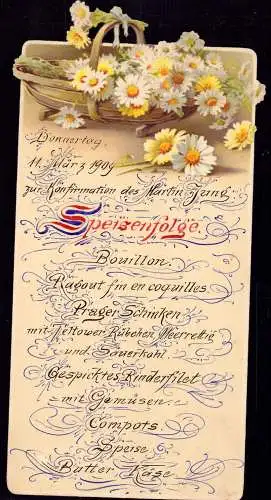 Donnerstag,
11. März 1909
zur Konfirmation des Martin Jung
Speisenfolge.
Bouillon.
Ragout fin en coquilles
Prager Schinken
mit Teltower Rübchen, Meerrettig
und Sauerkohl.
Gespicktes Rinderfilet
mit Gemüsen
Compots
Speise
Butter Käse